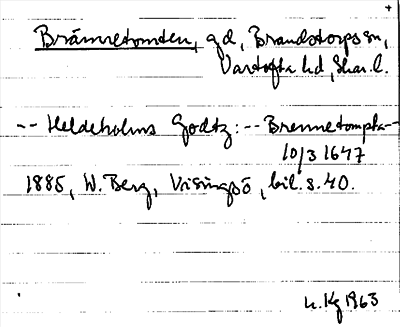 Brännetomten, gd, Brandstorps sn,
Vartofta hd, Skar. l.
-- Heldeholms Godtz: -- Brennetompta --
10/3 1647
1885, W. Berg, Visingsö, bil. s. 40.
u. Kg 1963